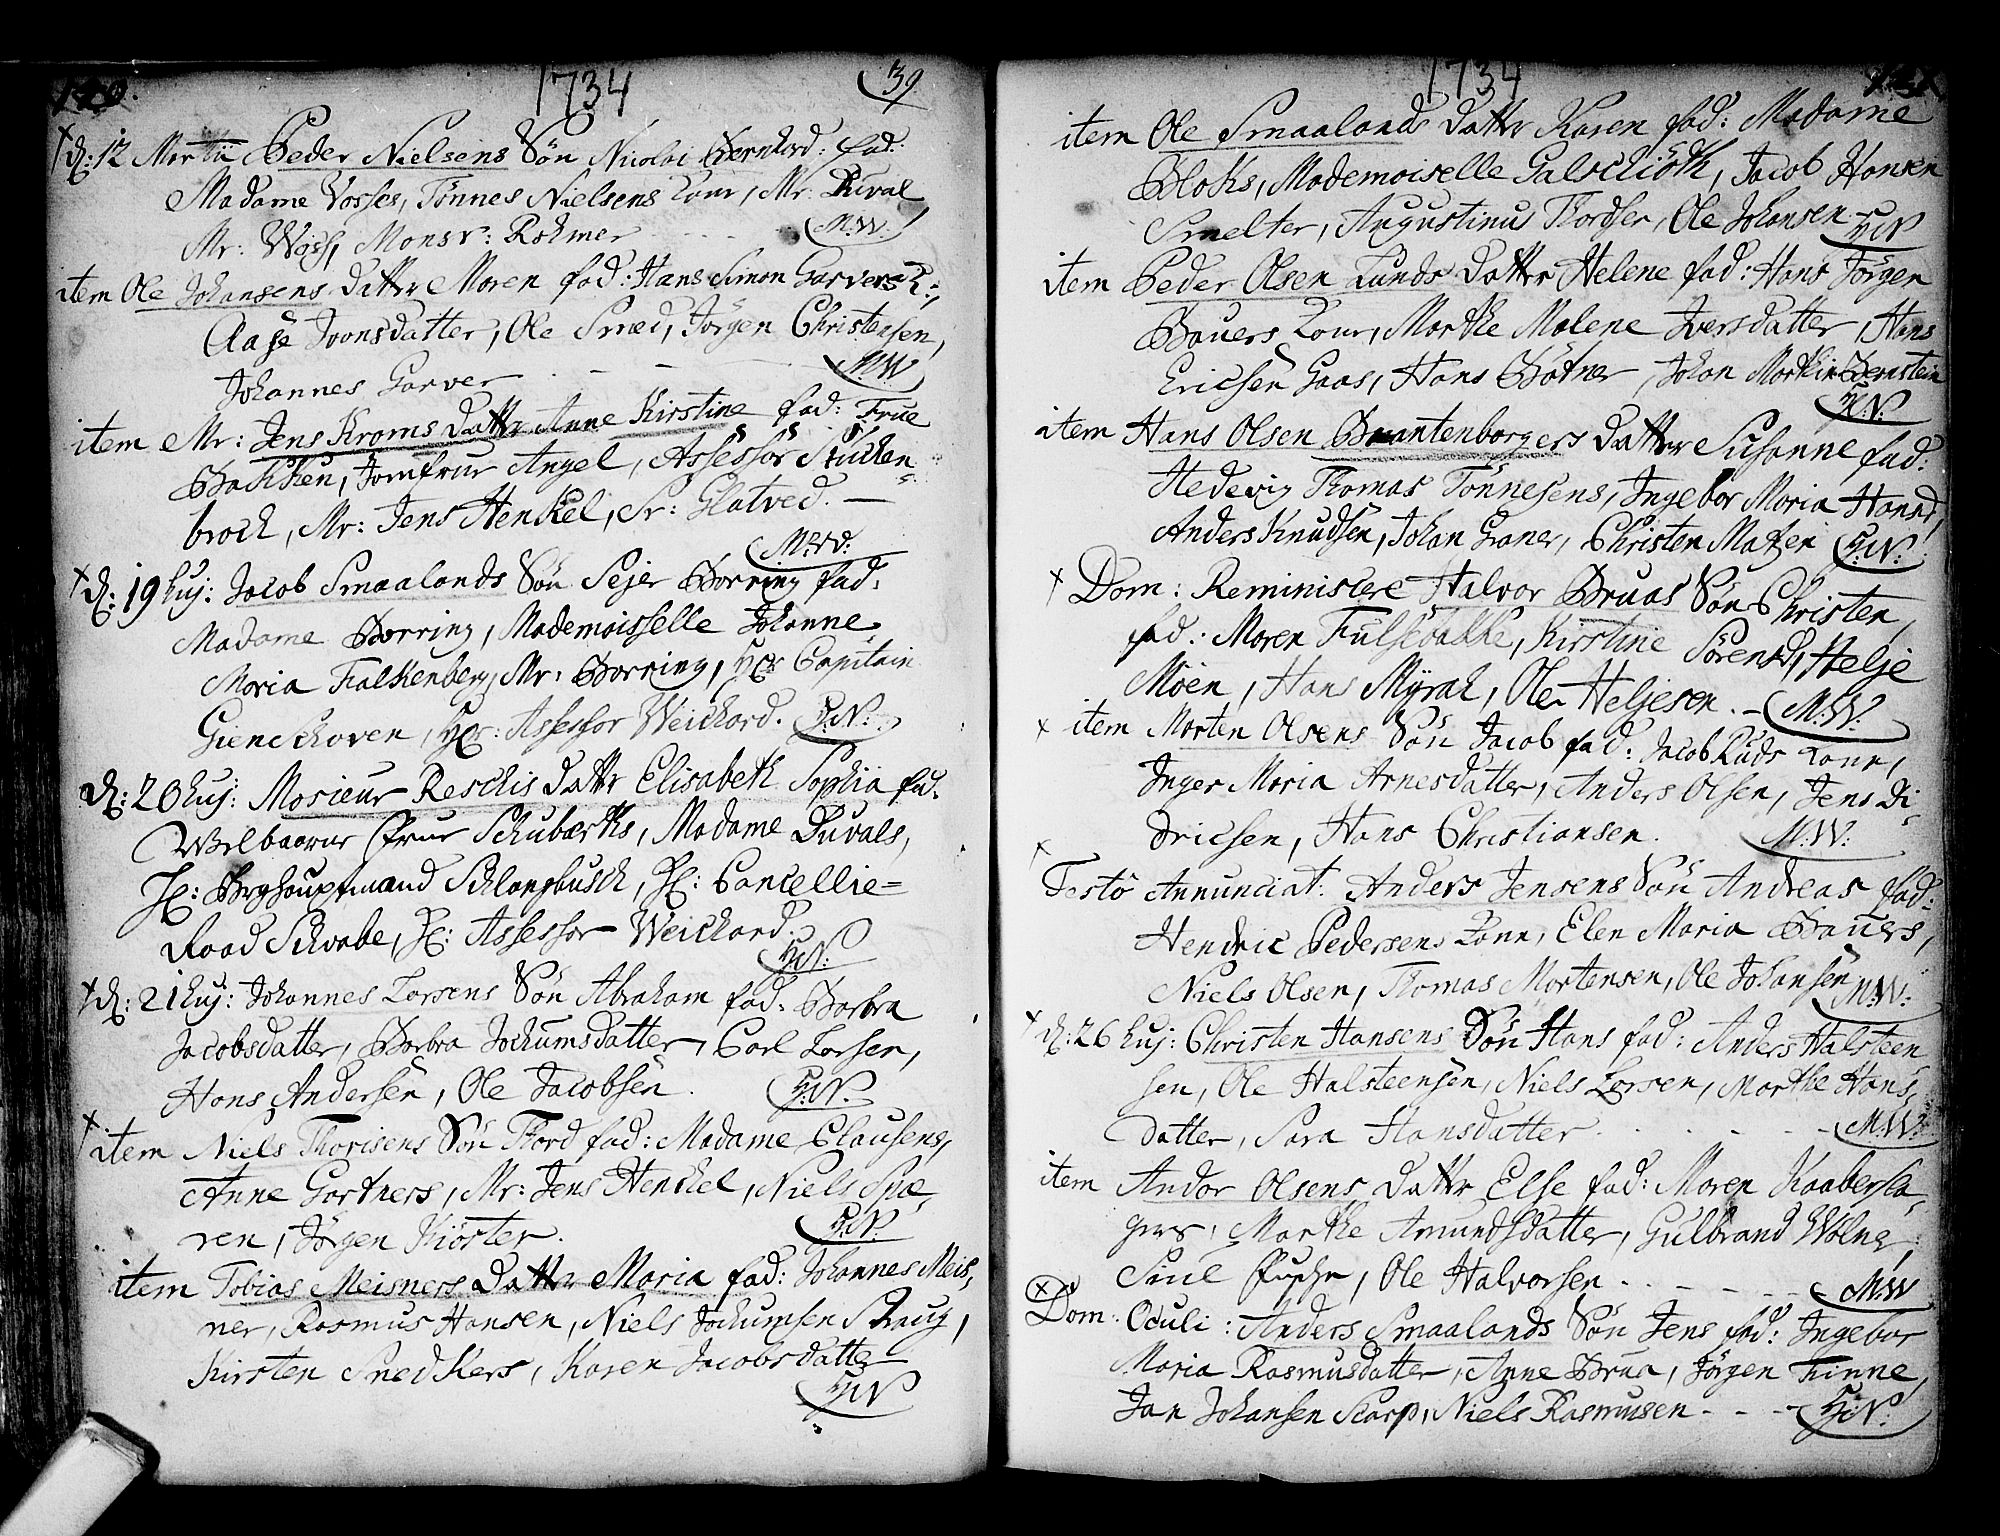 140. 1734 39
d: 12 Martii Peder Nielsens Søn Nicolai Bernhard: fad:
Madame Vosses, Tönnes Nielsens Konr, Mr. Duval
Mr: Woss, Monsr: Rohmer M.W.
item Ole Johansens Datter Maren fad: Hans Simon Garvers K:,
Aase Joonsdatter, Ole Smed, Jörgen Christensen,
Johannes Garver M:W
item Mr: Jens Kroms Datter Anne Kirstine fad: Frue
Bakken, Jomfrur Angel, Assessor Stücken
brock, Mr: Jens Henkel, Sr: Glatved.
M:W:
d: 19 huj: Jacob Smaalands Søn Sejer Borring fad.
Madame Borring, Mademoisselle Johanne
Maria Falkenberg, Mr: Borring, Hr: Capitain
Gienckhoven, Hr: Assessor Weichard. H:N:
d: 20 huj: Mosieur Reschis Datter Elisabeth Sophia fad.
Welbaarne frue Schubærths, Madame Duvals,
H: Berghauptmand Schlangbusch, H: Cancellie=
Raad Schwabe, H: Assessor Weichard.
H:N:
d: 21 huj: Johannes Larsens Søn Abraham fad. Barbra
Jacobsdatter, Barbra Jochumsdatter, Carl Larsen,
Hans Andersen, Ole Jacobsen. H:N.
item Niels Thorisens Søn Thord fad: Madame Clausens,
Anne Gartners, Mr: Jens Henckel, Niels Spæ
ren, Jörgen Kiörster. H:N:
item Tobias Meisners Datter Maria fad: Johannes Meis,
ner, Rasmus Hansen, Niels Jochumsen Skaug,
Kirsten Snedkers, Karen Jacobsdatter
H:N
1734 141
item Ole Smaalands Datter Karen fad: Madame
Bloks, Mademoiselle Galschiöth, Jacob Hansen
Smelter, Augustinus Thordsen, Ole Johansen H:N
item Peder Olsen Lunds Datter Helene fad: Hans Jörgen
Bauers Konr, Marthe Malene Iversdatter, Hans
Ericsen Gaas, Hans Bötner, Johan Martin Bernstein
H:N:
item Hans Olsen Brantenborgers Datter Susanne fad:
Hedevig Thomas Tönnesens, Ingebor Maria Hansd,
Anders Knudsen, Johan Graner, Christen Matzen H:N:
Dom: Reminiscere Halvor Bruas Søn Christen,
fad: Maren Fulsebakke, Kirstine Sörensd, Helje
Moen, Hans Myrah, Ole Heljesen. M:W:
item Morten Olsens Søn Jacob fad: Jacob Ruds Konr,
Inger Maria Arnesdatter, Anders Olsen, Jens Di
dricsen, Hans Christiansen. M:W:
Festo Annunciat: Anders Jensens Søn Andreas fad:
Hendric Pedersens Konr, Elen Maria Bauers,
Niels Olsen, Thomas Mortensen, Ole Johansen M:W:
d: 26 huj: Christen Hansens Søn Hans fad: Anders Halsteen
sen, Ole Halsteensen, Niels Larsen, Marthe Hans,
datter, Sara Hansdatter M:W:
item Andor Olsens Datter Else fad: Maren Kaabersla,
gers, Marthe Amundsdatter, Gulbrand Wölner,
Siul, Ole Halvorsen M:W
Dom: Oculi: Anders Smaalands Søn Jens fad: Ingebor
Maria Rasmusdatter, Anne Brua, Jörgen Finne,
Jan Johansen Scarp, Niels Rasmusen H:N: